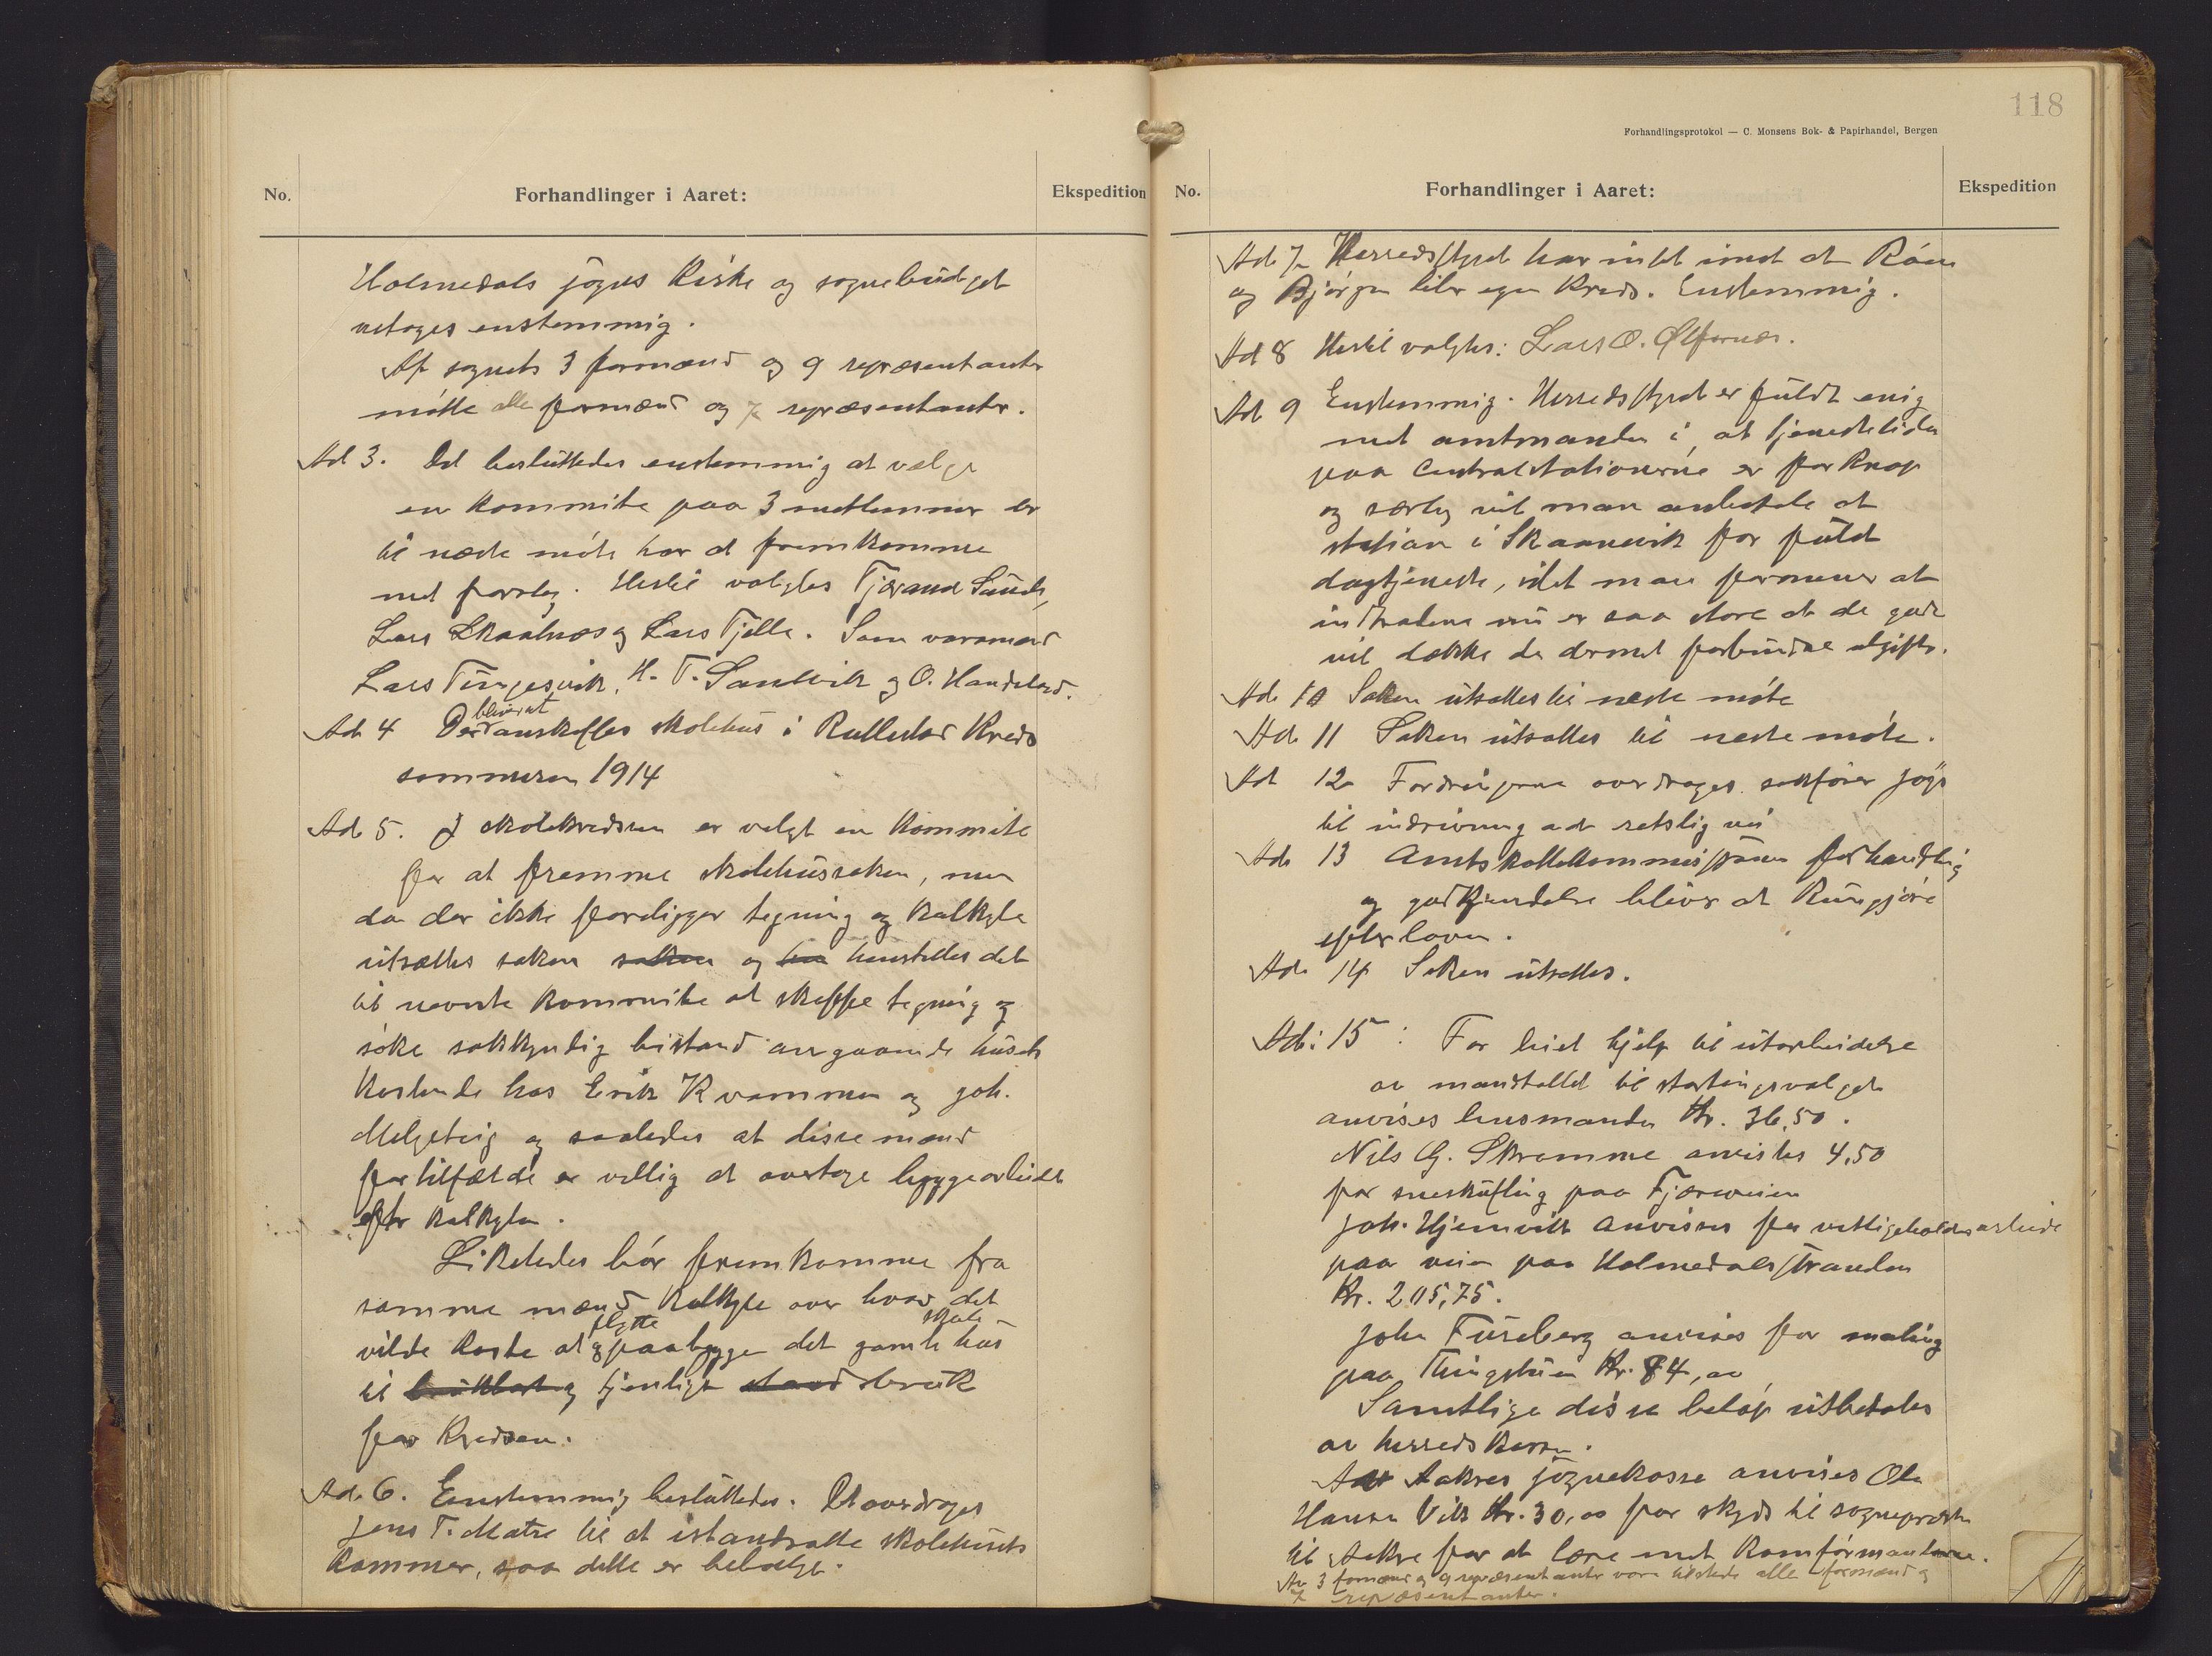 No.
Forhandlinger i Aaret:
Ekspedition
Holmedals sogns Kirke og sognebudget
vetoges enstemmig.
Af sognets 3 formænd og 9 repræsentanter
møtte alle formænd og 7 repræsentanter.
Ad 3. Det besluttedes enstemmig at vælge
en Kommite paa 3 medlemmer der
til næste møte har at fremkomme
med forslag. Hertil valgtes Tjerand Sunde,
Lars Skaalnæs og Lars Fjelle. Som varamænd
Lars Tungesvik, H. T. Sandvik og O. Handeland.
blir at
Ad 4 Der anskaffes skolehus i Rullestad Kreds
sommeren 1914
Ad 5. I skolekredsen er valgt en Kommite
for at fremme skolehussaken, men
da der ikke foreligger tegning og Kalkyle
utsættes saken saken og henstilles det
til nevnte Kommite at skaffe tegning og
søke sakkyndig bistand angaaende husets
Kostende hos Erik Kvammen og Joh.
Milgeteig og saaledes at disse mænd
for tilfælde er villig at overtage byggearbeidet
efter Kalkylen.
Likeledes bør fremkomme fra
samme mænd Kalkyle over hvad det
flytte skole-
vilde Koste at & paabygge det gamle hus
til brukbart og tjenlige stand bruk
for Kredsen.
Ad. 6. Enstemmig besluttedes. Det overdrages
Jens T. Matre til at istandsatte skolehusets
Kammer, saa dette er beboelig.
118
Forhandlingsprotokol — C. Monsens Bok- & Papirhandel, Bergen
No.
Forhandlinger i Aaret:
Ekspedition
Ad 7 Herredsstyret har intet imot at
og Bjørgen blir egen Kreds. Enstemmig.
Ad 8 Hertil valgtes: Lars O. Ølfernes.
Ad 9 Enstemmig. Herredsstyret er fuldt enig
med amtmanden i at tjenestetiden
paa Centralstationerne er for Knap
og særlig vil man anbefale at
station i Skaanevik faar fuld
dagtjeneste, idet man formener at
indtækterne nu er saa store at de godt
vil dække de dermed forbundne utgifter.
Ad 10 Saken utsættes til neste møte
Ad. 11 Saken utsættes til neste møte.
Ad 12 Fordringerne overdrages sakfører
til inddrivning ad retslig vei
Ad 13 Amtsskattekommissionen forhandling
og godkjendelse bliver at Kungjøre
efter loven.
Ad. 14 Saken utsættes.
Ad: 15: For leiet hjelp til utarbeidelse
av mandtallet til stortingsvalget
anvises lensmanden Kr. 36,50.
Nils G. Skromme anvistes 4,50
for sneskufling paa Fjæreveien
Joh. Hjemvik anvises for vetligeholdsarbeide
paa veien paa Holmedalsstranden
Kr. 205,75.
John Fureberg anvises for maling
paa Thingstuen Kr. 84,00
Samtlige disse beløp utbetales
av herredskassen.
Av Aakres sognekasse anvises Ole
Hansen Vik Kr. 30,00 for skyds til sogneprest
til Aakre for at læse med Konfirmanterne.
Av 3 formænd og 9 repræsentanter vare tilstede alle formænd og
7 repræsentanter.